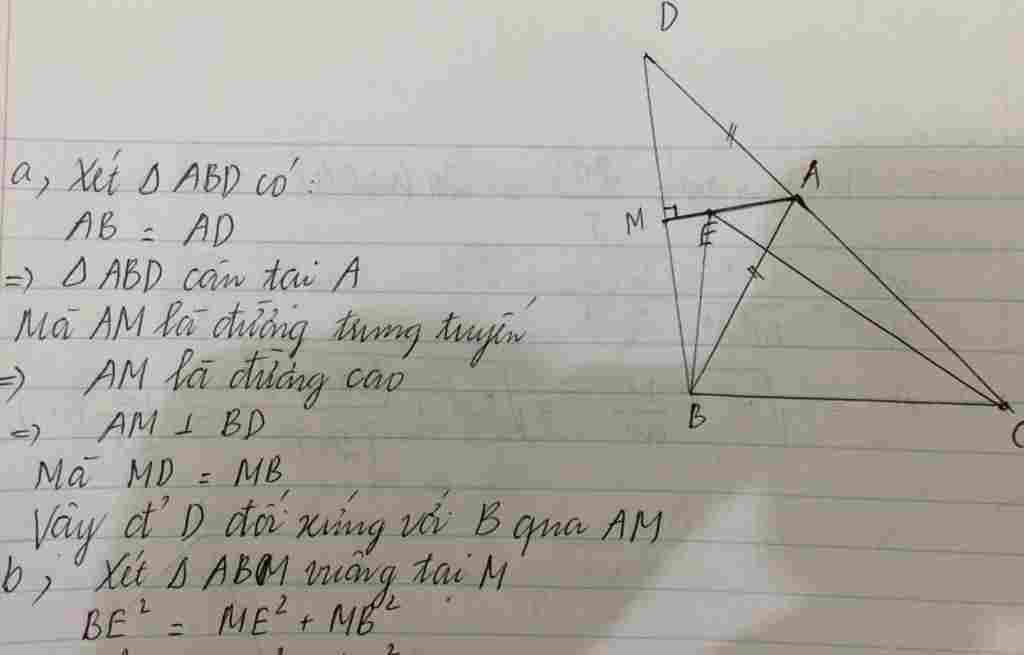 D
A
M
E
B
C
a, Xét Δ ABD có:
AB = AD
=> Δ ABD cân tại A
Mà AM là đường trung tuyến
=> AM là đường cao
=> AM ⊥ BD
Mà MD = MB
Vậy đ' D đối xứng với B qua AM
b, Xét Δ ABM vuông tại M
BE² = ME² + MB²